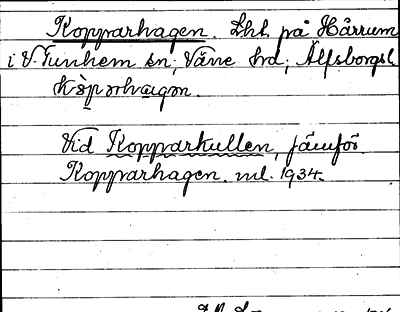 Kopparhagen. Lht. på Hårrum
i V. Tunhem sn; Väne hd; Älfsborgs l.
Vid Kopparkullen, jämför
Kopparhagen. ml. 1934.